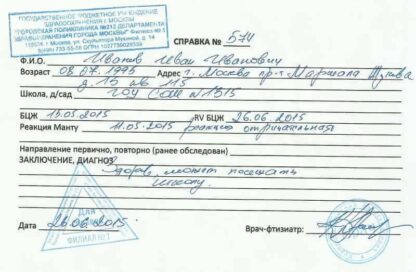 ГОСУДАРСТВЕННОЕ БЮДЖЕТНОЕ УЧРЕЖДЕНИЕ
ЗДРАВООХРАНЕНИЯ Г. МОСКВЫ
"ГОРОДСКАЯ ПОЛИКЛИНИКА №212 ДЕПАРТАМЕНТА
ЗДРАВООХРАНЕНИЯ ГОРОДА МОСКВЫ" Филиал № 1
СПРАВКА № 574
Ф.И.О. Иванов Иван Иванович
Возраст 08.07.1995 Адрес г. Москва пр-т Маршала Жукова
д. 15 кв 115
Школа, д/сад ГОУ СОШ №1315
БЦЖ 15.05.2015 RV БЦЖ 26.06.2015
Реакция Манту 11.05.2015 реакция отрицательная
Направление первично, повторно (ранее обследован)
ЗАКЛЮЧЕНИЕ, ДИАГНОЗ
Здоров, может посещать
школу.
Для
ФИЛИАЛ №1
Дата 26.06.2015
Врач-фтизиатр: